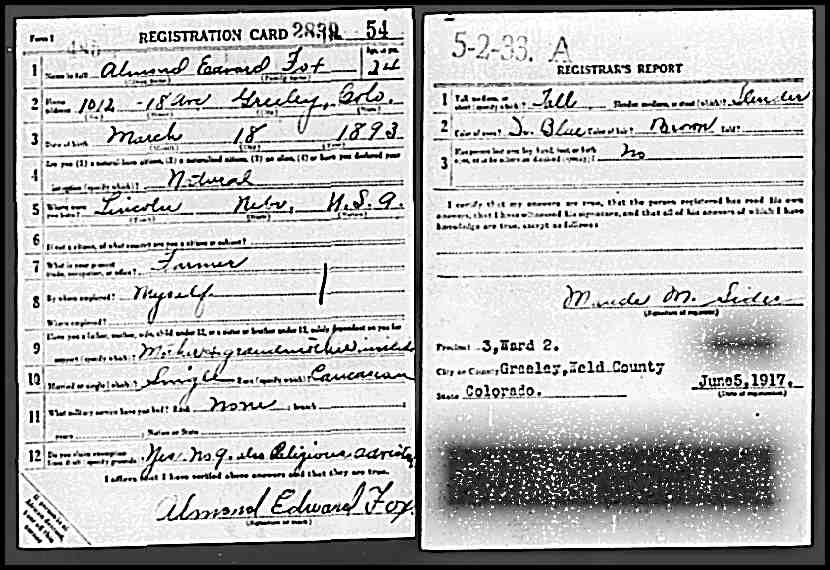 Form 1
REGISTRATION CARD 2839 54
1 Name in full Almond Edward Fox Age, in yrs. 24
(Given name) (Family name)
2 Home address 1012 - 18 Ave Greeley, Colo.
(No.) (Street) (City) (State)
3 Date of birth March 18 1893
(Month) (Day) (Year)
4 Are you (1) a natural-born citizen, (2) a naturalized citizen, (3) an alien, (4) or have you declared your
intention (specify which)? Natural
5 Where were you born? Lincoln Nebr. U.S.A.
(Town) (State) (Nation)
6 If not a citizen, of what country are you a citizen or subject?
7 What is your present trade, occupation, or office? Farmer
8 By whom employed? Myself
Where employed?
9 Have you a father, mother, wife, child under 12, or a sister or brother under 12, solely dependent on you for
support (specify which)? Mother & grandmother invalid
10 Married or single (which)? Single Race (specify which)? Caucasian
11 What military service have you had? Rank None ; branch
years ; Nation or State
12 Do you claim exemption from draft (specify grounds)? Yes. No 9. also Religious
I affirm that I have verified above answers and that they are true.
Almond Edward Fox
(Signature or mark)
5-2-33. A
REGISTRAR'S REPORT
1 Tall, medium, or short (specify which)? Tall Slender, medium, or stout (which)? Slender
2 Color of eyes? D. Blue Color of hair? Brown Bald?
3 Has person lost arm, leg, hand, foot, or both eyes, or is he otherwise disabled (specify)? No
I certify that my answers are true, that the person registered has read his own
answers, that I have witnessed his signature, and that all of his answers of which I have
knowledge are true, except as follows:
M.
(Signature of registrar)
Precinct 3, Ward 2.
City or County Greeley, Weld County
State Colorado.
June 5, 1917.
(Date of registration)